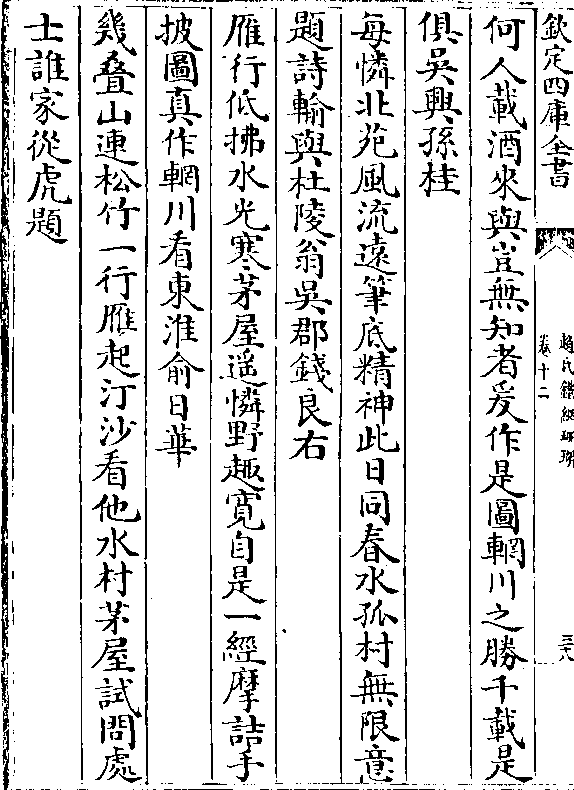 欽定四庫全書
趙氏鐵網珊瑚
卷十二
三六
何人載酒來與豈無知者爰作是圖輞川之勝千載是
俱吳興孫桂
每憐北苑風流遠筆底精神此日同春水孤村無限意
題詩輸與杜陵翁吳郡錢良右
雁行低拂水光寒茅屋遥憐野趣寛自是一經摩詰手
披圖真作輞川看東淮俞日華
幾疊山連松竹一行雁起汀沙看他水村茅屋試問處
士誰家從虎題